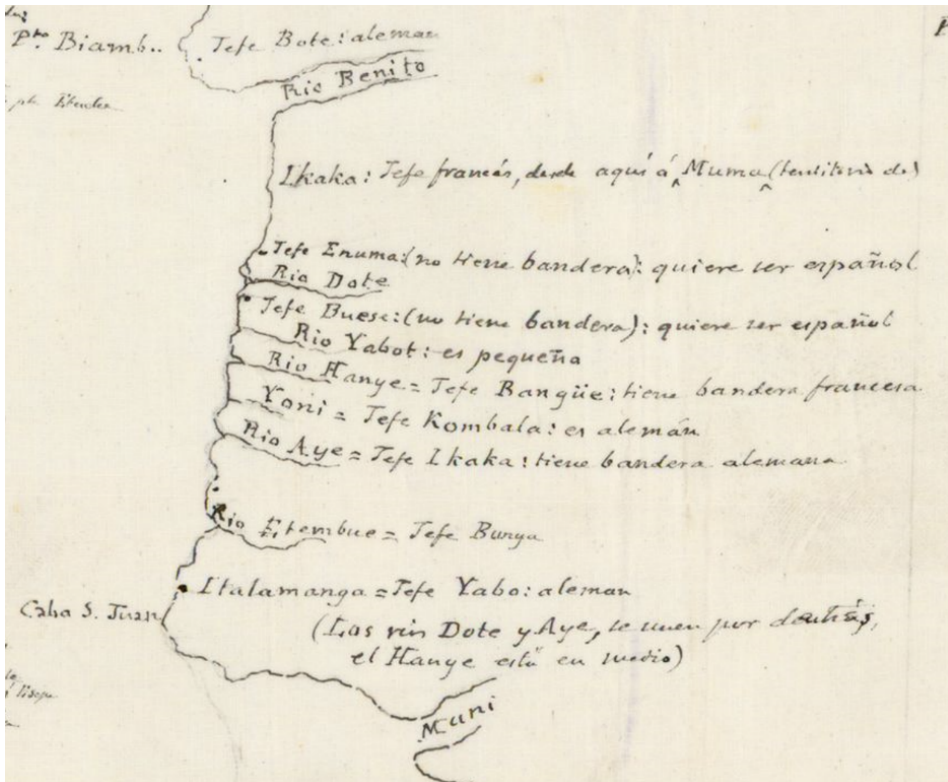 Pto Biamb..
Jefe Bote: aleman
Rio Benito
Ikaka: Jefe francés, desde aquí á Muma (territorio de)
Jefe Enuma: (no tiene bandera): quiere ser español
Rio Dote
Jefe Buese: (no tiene bandera): quiere ser español
Rio Yabot: es pequeño
Rio Hanye = Jefe Bangüe: tiene bandera francesa
Yoni = Jefe Kombala: es alemán
Rio Aye = Jefe Ikaka: tiene bandera alemana
Rio Etembue = Jefe Bunya
Italamanga = Jefe Yabo: aleman
Cabo S. Juan
(Los rios Dote y Aye, se unen por detrás,
el Hanye está en medio)
Muni